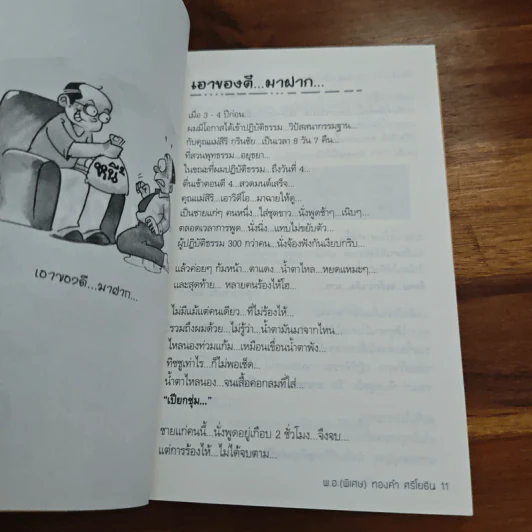 หนี้
เอาของดี...มาฝาก...
เอาของดี...มาฝาก...
เมื่อ 3 - 4 ปีก่อน...
ผมมีโอกาสได้เข้าปฏิบัติธรรม...วิปัสสนากรรมฐาน
กับคุณแม่สิริ กรินชัย...เป็นเวลา 8 วัน 7 คืน...
ที่สวนพุทธธรรม...อยุธยา...
ในขณะที่ผมปฏิบัติธรรม...ถึงวันที่ 4...
ตื่นเช้าตอนตี 4...สวดมนต์เสร็จ...
คุณแม่สิริ...เอาวิดีโอ...มาฉายให้ดู...
เป็นชายแก่ๆ คนหนึ่ง...ใส่ชุดขาว...นั่งพูดช้าๆ...เนิบๆ...
ตลอดเวลาการพูด...นั่งนิ่ง...แทบไม่ขยับตัว...
ผู้ปฏิบัติธรรม 300 กว่าคน...นั่งจ้องฟังกันเงียบกริบ...
แล้วค่อยๆ ก้มหน้า...ตาแดง...น้ำตาไหล...หยดแหมะๆ...
และสุดท้าย...หลายคนร้องไห้โฮ...
ไม่มีแม้แต่คนเดียว...ที่ไม่ร้องไห้...
รวมถึงผมด้วย...ไม่รู้ว่า...น้ำตามันมาจากไหน...
ไหลนองท่วมแก้ม...เหมือนเขื่อนน้ำตาพัง...
ทิชชูเท่าไร...ก็ไม่พอเช็ด...
น้ำตาไหลนอง...จนเสื้อคอกลมที่ใส่...
"เปียกชุ่ม..."
ชายแก่คนนี้...นั่งพูดอยู่เกือบ 2 ชั่วโมง...จึงจบ...
แต่การร้องไห้...ไม่ได้จบตาม...
พ.อ.(พิเศษ) ทองคำ ศรีโยธิน 11